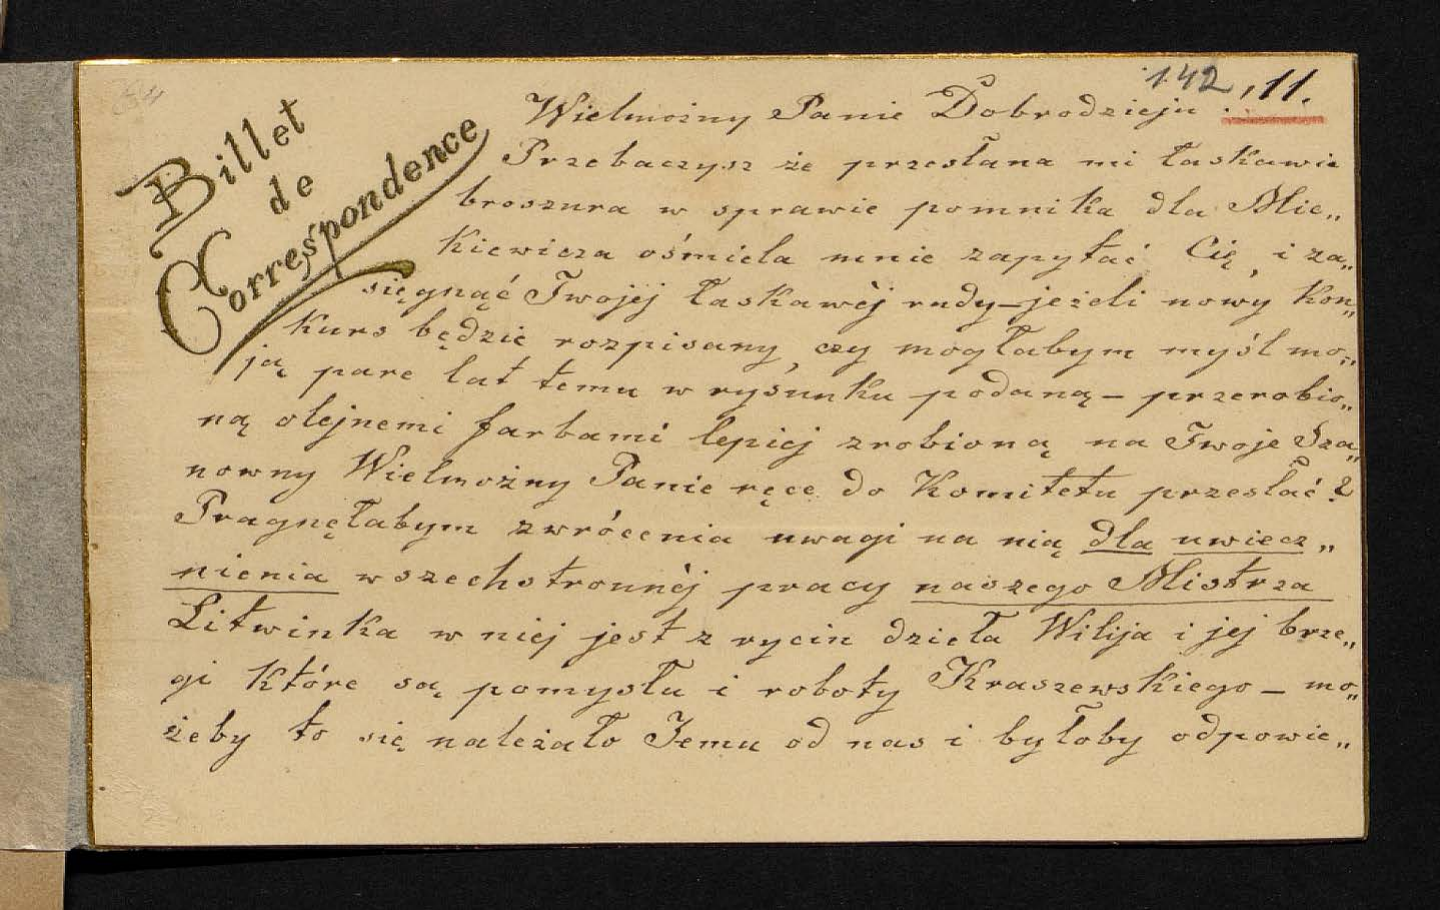 142, 11.
Billet
de
Correspondence
Wielmożny Panie Dobrodzieju
Przebaczysz że przesłana mi łaskawie
broszura w sprawie pomnika dla Mic„
kiewicza ośmiela mnie zapytać Cię, i za„
sięgnąć Twojej łaskawéj rady – jeżeli nowy kon„
kurs będzie rozpisany, czy mogłabym myśl mo„
ją pare lat temu w rysunku podaną – przerobio„
ną olejnemi farbami lepiej zrobioną na Twoje Sza„
nowny Wielmożny Panie ręce do Komitetu przesłać?
Pragnęłabym zwrócenia uwagi na nią dla uwiecz„
nienia wszechstronnéj pracy naszego Mistrza
Litwinka w niej jest z rycin dzieła Wilija i jej brze„
gi które są pomysłu i roboty Kraszewskiego – mo„
żeby to się należało Jemu od nas i byłoby odpowie„